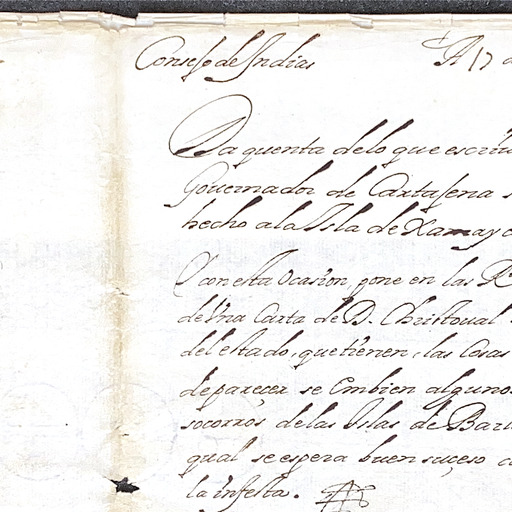 Consejo de Indias A 17
Da quenta de lo que escriu
Gouernador de Cartajena
hecho a la Isla de Xamayc
Y con esta Ocasion, pone en las R
de Vna Carta de D. Christoual
del estado, que tienen, las Cosas
de parecer se Embien alguno
socorros de las Islas de Barl
qual se espera buen suçeso
la infesta.